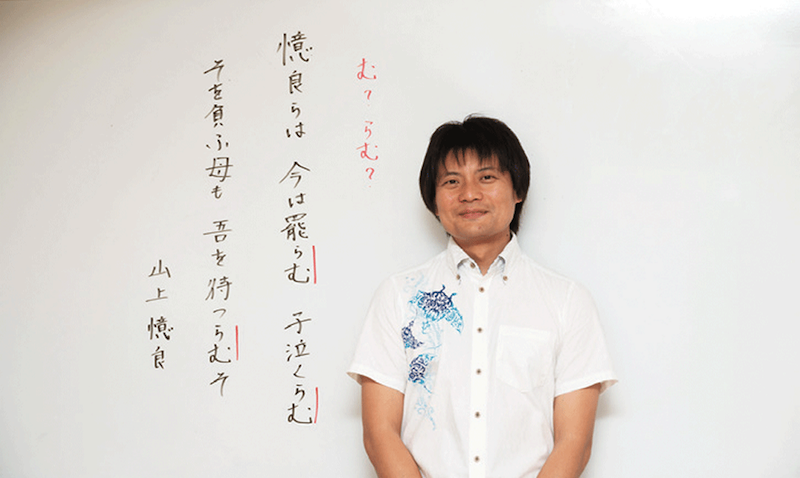 む?らむ?
憶良らは 今は罷らむ 子泣くらむ
そを負ふ母も 吾を待つらむそ
山上憶良